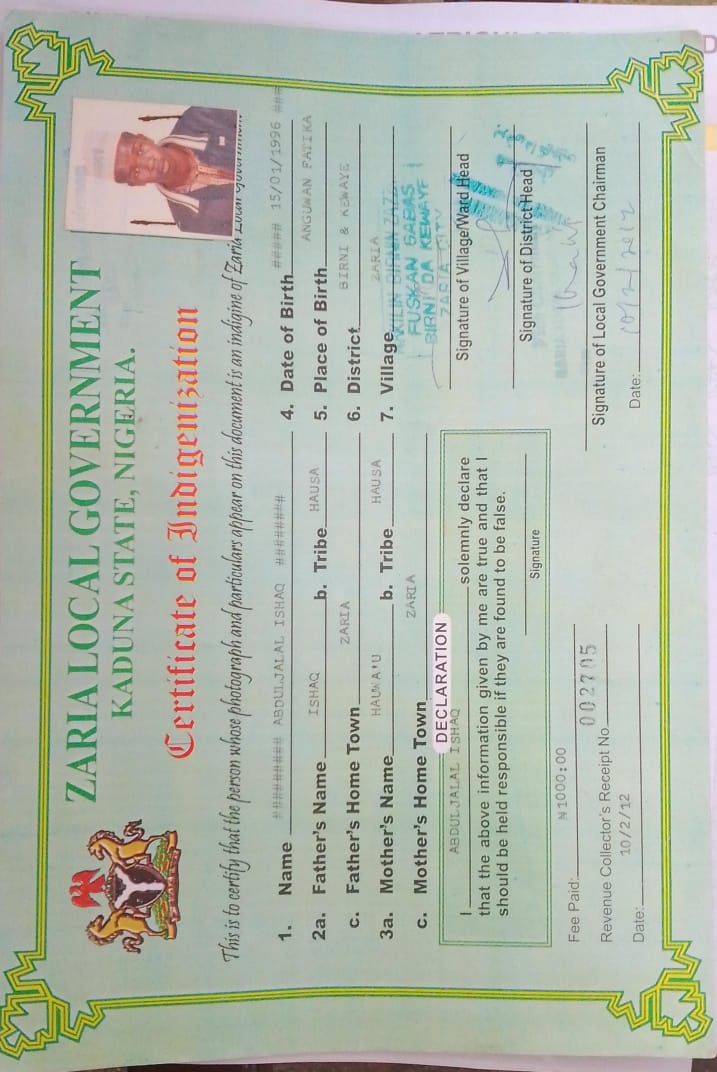 ZARIA LOCAL GOVERNMENT
KADUNA STATE, NIGERIA.
Certificate of Indigenization
This is to certify that the person whose photograph and particulars appear on this document is an indigine of Zaria Local Government.
1. Name ######## ABDULJALAL ISHAQ ########
2a. Father's Name ISHAQ b. Tribe HAUSA
c. Father's Home Town ZARIA
3a. Mother's Name HAUWA'U b. Tribe HAUSA
c. Mother's Home Town ZARIA
4. Date of Birth ##### 15/01/1996 ###
5. Place of Birth ANGUWAN FATIKA
6. District BIRNI & KEWAYE
7. Village ZARIA
DECLARATION
I ABDULJALAL ISHAQ solemnly declare
that the above information given by me are true and that I
should be held responsible if they are found to be false.
Signature
FUSKAN GABAS
BIRNI DA KEWAYE
ZARIA CITY
Signature of Village/Ward Head
Signature of District Head
Signature of Local Government Chairman
Date: 10/2/2012
Fee Paid: ₦1000:00
Revenue Collector's Receipt No 002705
Date: 10/2/12